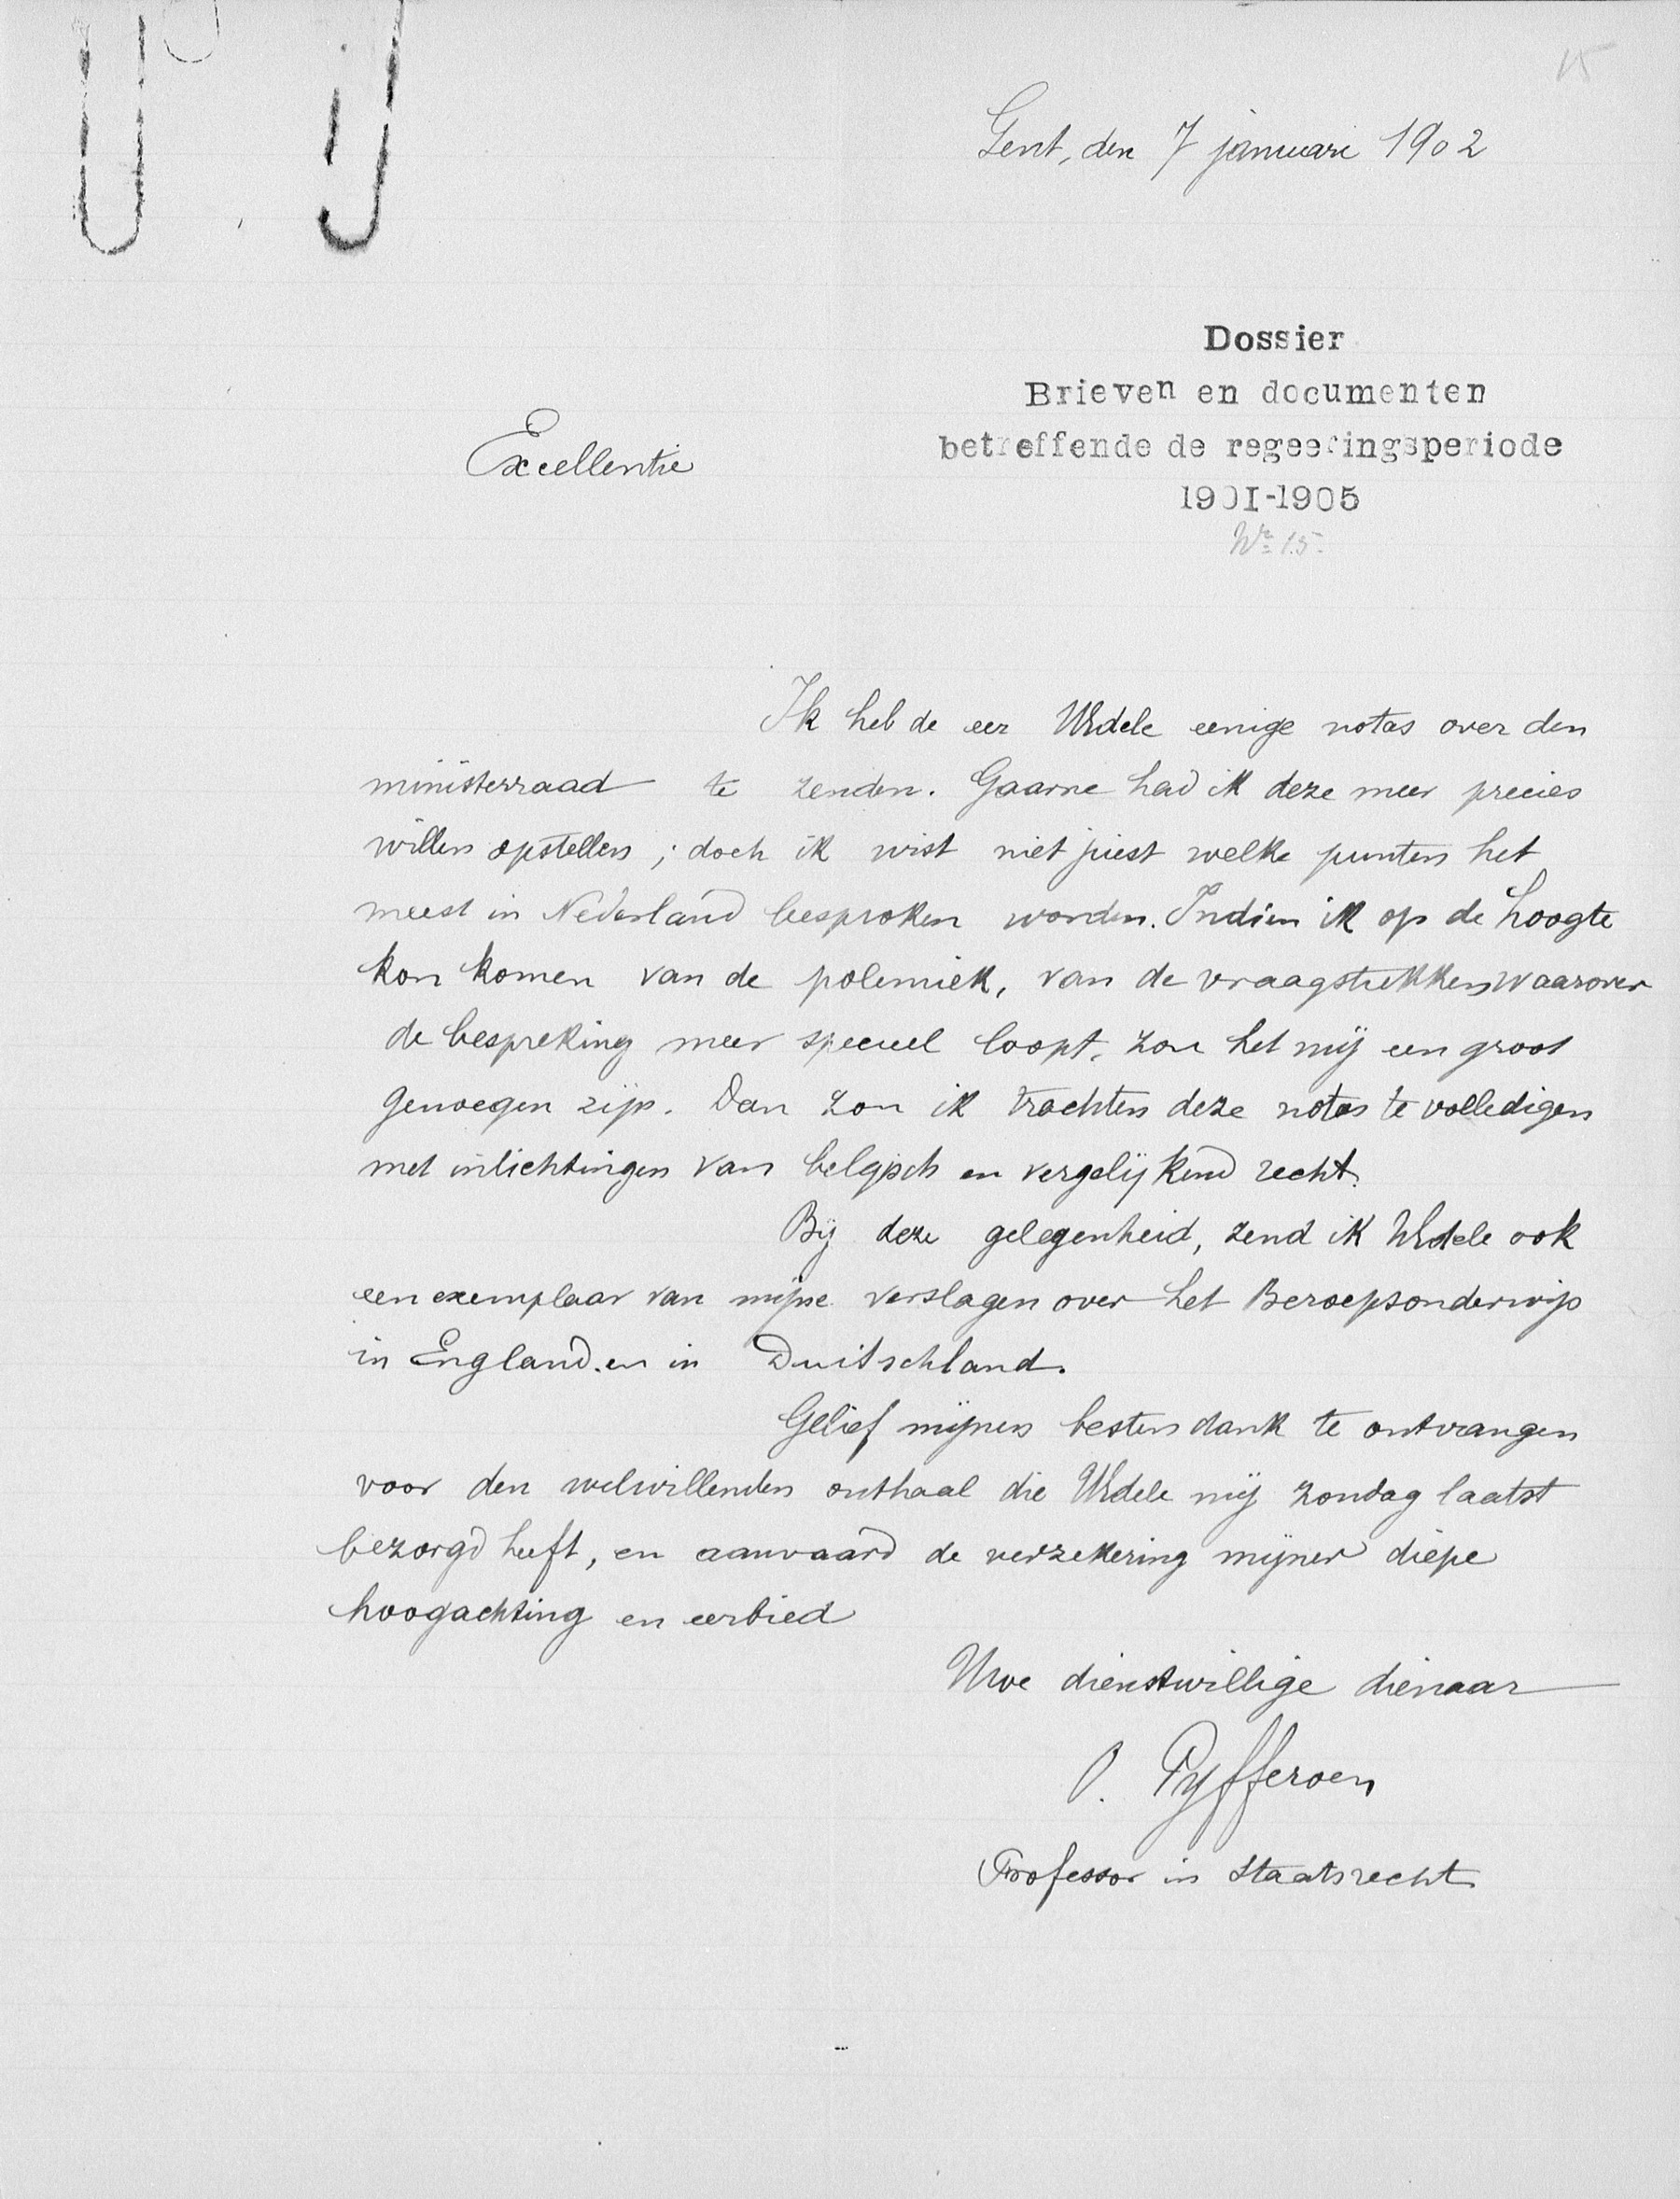 15
Gent, den 7 januari 1902
Dossier
Brieven en documenten
betreffende de regeeringsperiode
1901-1905
Nr 15.
Excellentie
Ik heb de eer UEdele eenige notas over den
ministerraad te zenden. Gaarne had ik deze meer precies
willen opstellen; doch ik wist niet juist welke punten het
meest in Nederland besproken worden. Indien ik op de hoogte
kon komen van de polemiek, van de vraagstukken waarover
de bespreking meer specieel loopt, zou het mij een groot
genoegen zijn. Dan zou ik trachten deze notas te volledigen
met inlichtingen van belgisch en vergelijkend recht.
Bij deze gelegenheid, zend ik UEdele ook
een exemplaar van mijne verslagen over het Beroepsonderwijs
in England en in Duitschland.
Gelief mijnen besten dank te ontvangen
voor den welwillenden onthaal die UEdele mij zondag laatst
bezorgd heeft, en aanvaard de verzekering mijner diepe
hoogachting en eerbied
Uwe dienstwillige dienaar
O. Pyfferoen
Professor in Staatsrecht